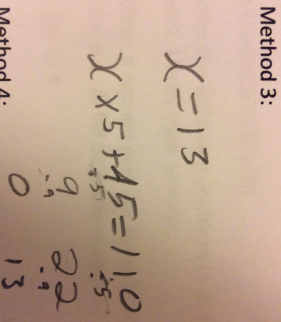 Method 3:
x = 13
x × 5 + 45 = 110
÷5 ÷5
9 22
-9 -9
Method 4: 0 13